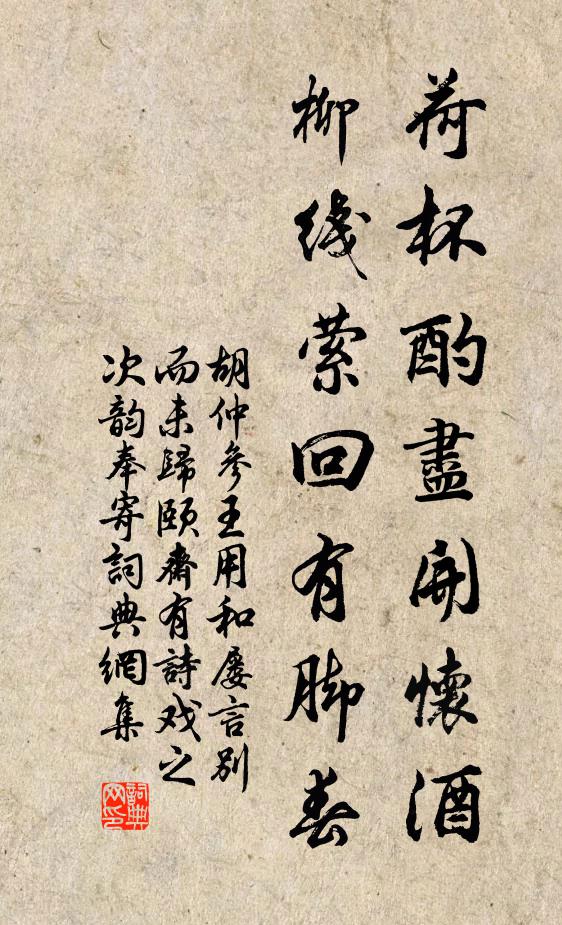 荷杯酌盡開懷酒
柳綫萦回有脚春
胡仲參王用和屡言别
而未歸頤齋有詩戏之
次韵奉寄詞典網集
詞典网印